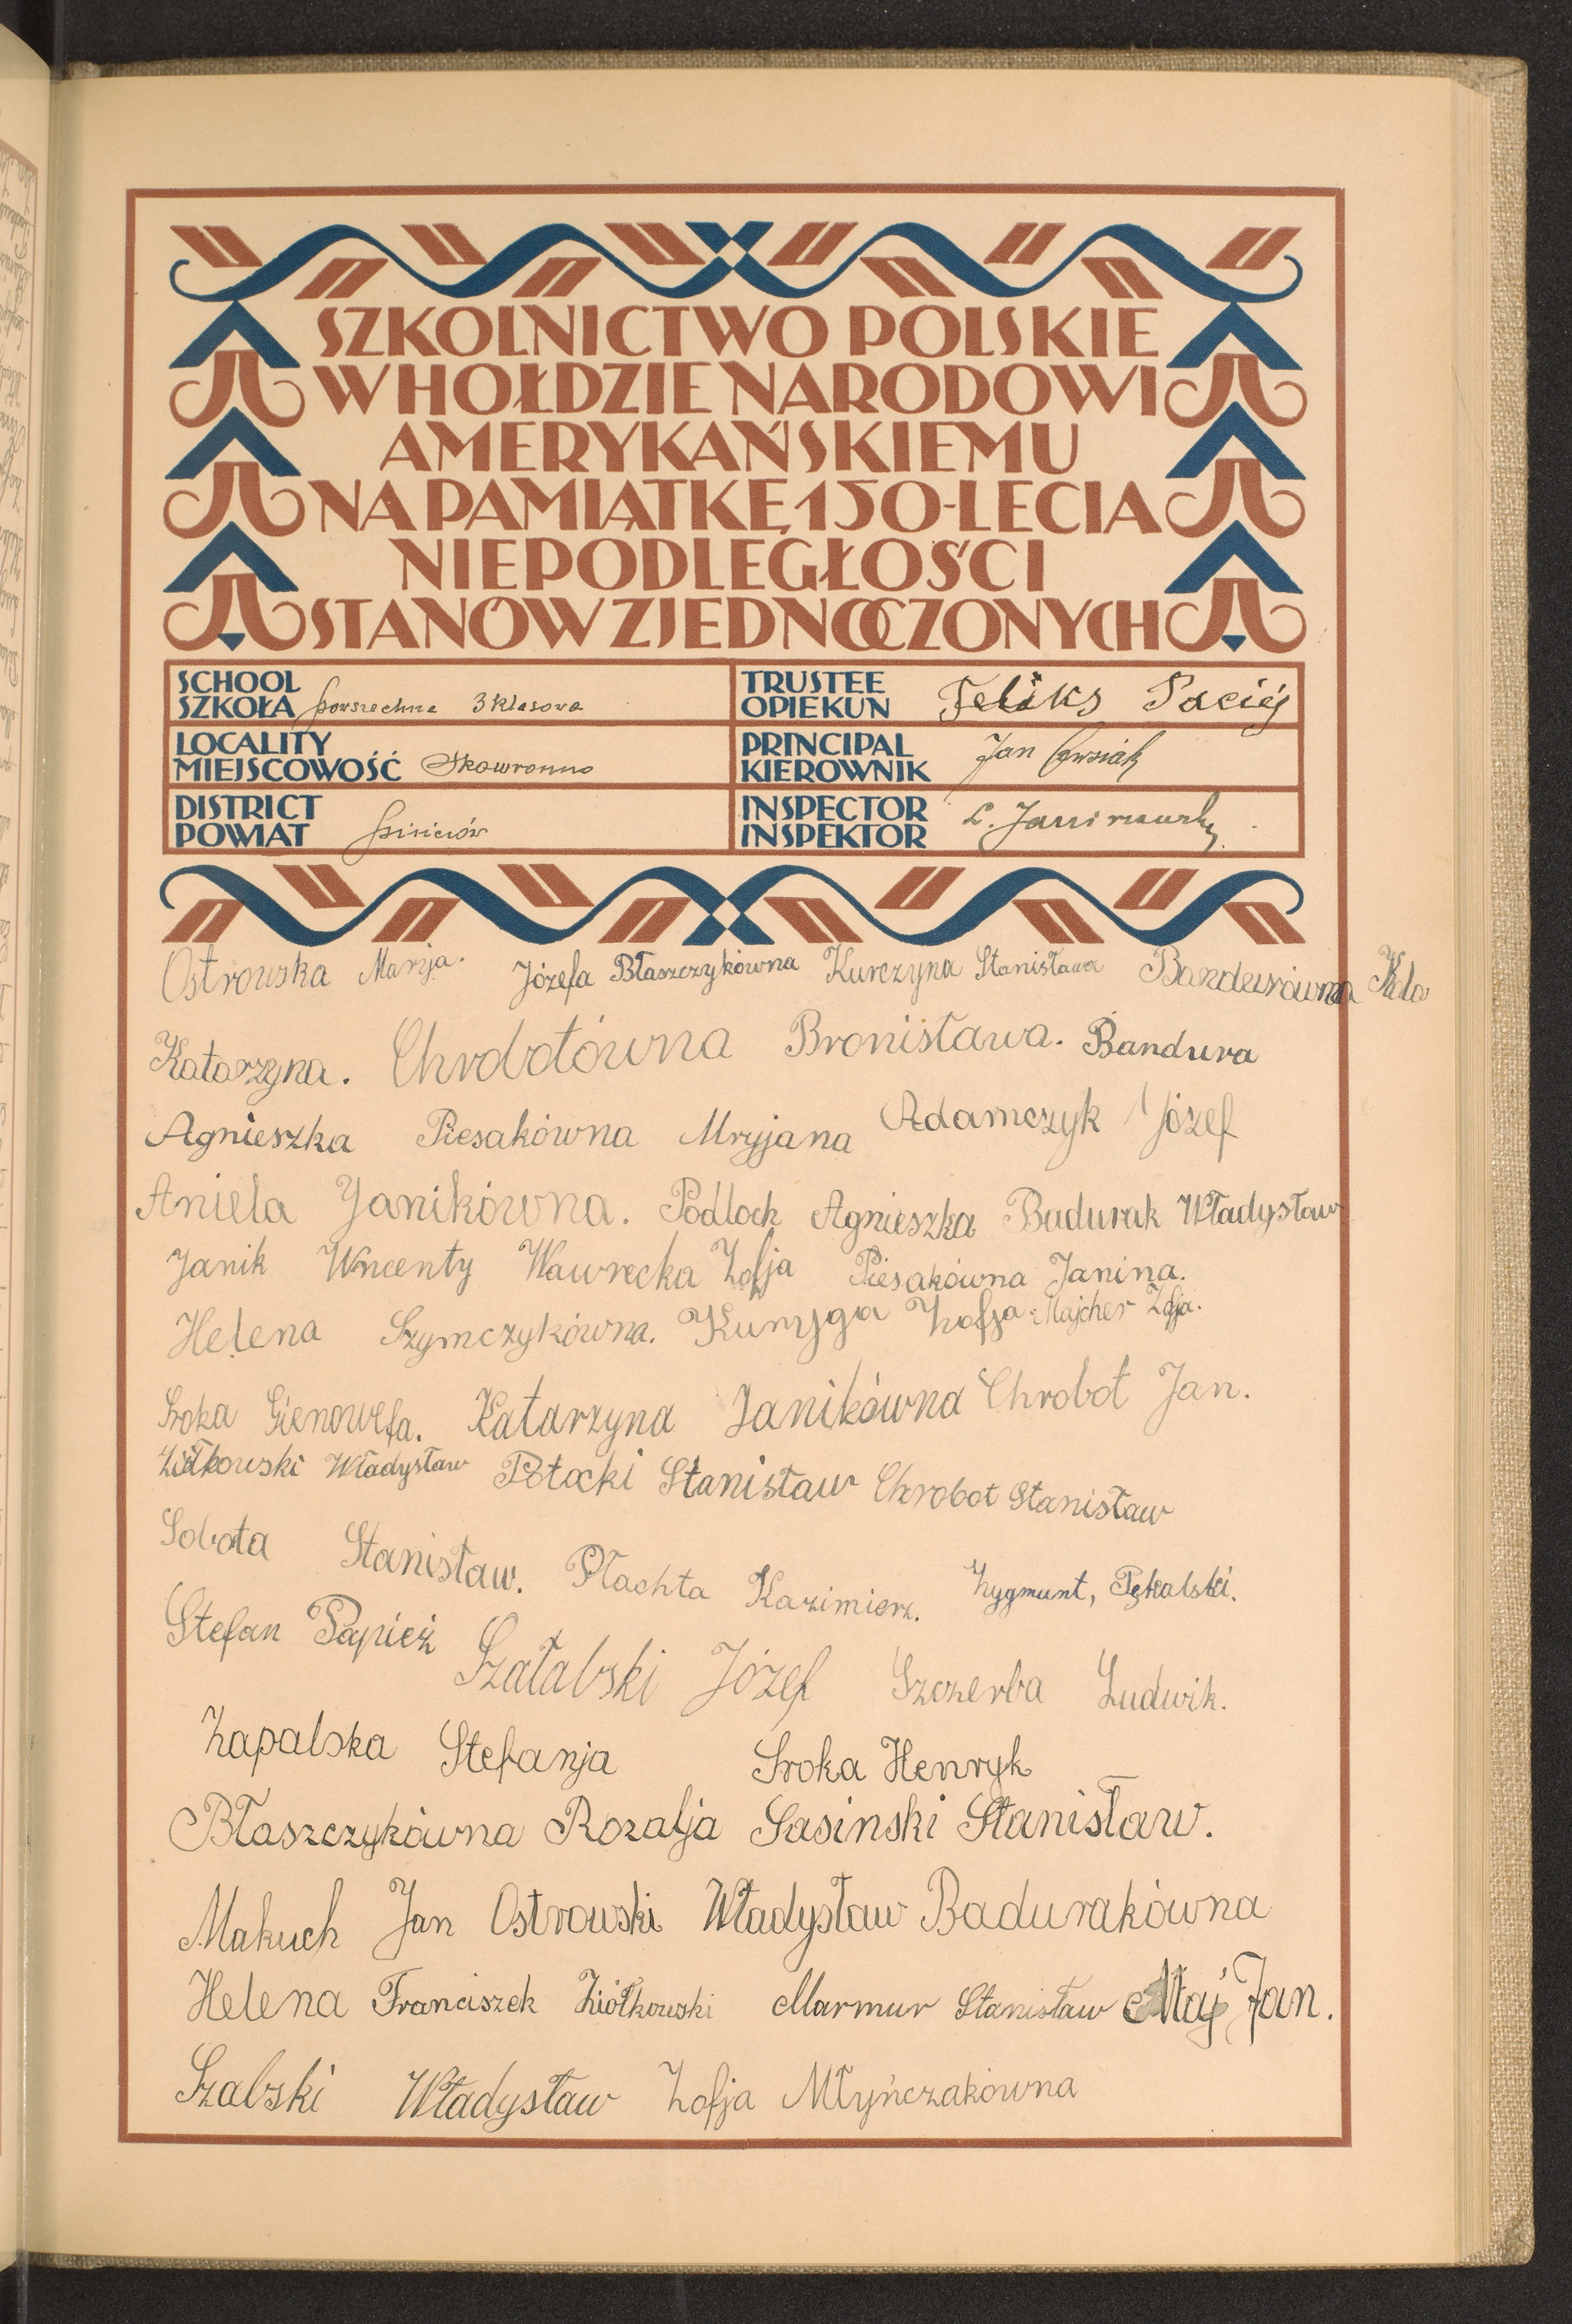 SZKOLNICTWO POLSKIE
W HOŁDZIE NARODOWI
AMERYKAŃSKIEMU
NA PAMIĄTKĘ 150-LECIA
NIEPODLEGŁOŚCI
STANÓW ZJEDNOCZONYCH
SCHOOL
SZKOŁA powszechna 3 klasowa
TRUSTEE
OPIEKUN Feliks Paciej
LOCALITY
MIEJSCOWOŚĆ Skowronno
PRINCIPAL
KIEROWNIK Jan
DISTRICT
POWIAT Pińczów
INSPECTOR
INSPEKTOR L.
Ostrowska Marija. Józefa Błaszczykówna Kurczyna Stanisława Bandurówna Kata
Katarzyna. Chrobotówna Bronisława. Bandura
Agnieszka Piesakówna Mryjana Adamczyk Józef
Aniela Janikówna. Podlock Agnieszka Badurak Władysław
Janik Wncenty Wawrecka Zofja Piesakówna Janina.
Helena Szymczykówna. Kunyga Zofja. Majcher Zofja.
Sroka Gienowefa. Katarzyna Janikówna Chrobot Jan.
Ziółkowski Władysław Potocki Stanisław Chrobot Stanisław
Sobota Stanisław. Płachta Kazimierz. Zygmunt, Tękalski.
Stefan Papież Szałabski Józef Szczerba Ludwik.
Zapalska Stefanja Sroka Henryk
Błaszczykówna Rozalja Sasinski Stanisław.
Makuch Jan Ostrowski Władysław Badurakówna
Helena Franciszek Ziółkowski Marmur Stanisław Maj Jan.
Szabski Władysław Zofja Młyńczakówna